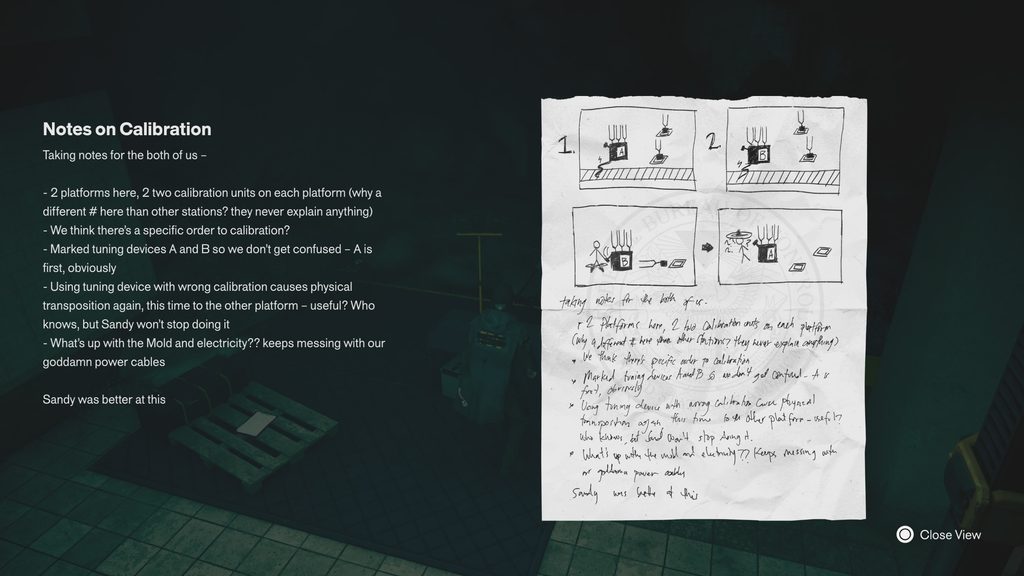 Notes on Calibration
Taking notes for the both of us –
- 2 platforms here, 2 two calibration units on each platform (why a
different # here than other stations? they never explain anything)
- We think there's a specific order to calibration?
- Marked tuning devices A and B so we don't get confused – A is
first, obviously
- Using tuning device with wrong calibration causes physical
transposition again, this time to the other platform – useful? Who
knows, but Sandy won't stop doing it
- What's up with the Mold and electricity?? keeps messing with our
goddamn power cables
Sandy was better at this
1.
A
2.
B
B
A
BUREAU OF
taking notes for the both of us.
2 Platforms here, 2 two calibration units on each platform
(why a different # here than other stations? they never explain anything)
We think there's specific order to calibration
Marked tuning devices A and B so we don't get confused - A is
first, obviously
Using tuning device with wrong calibration cause physical
transposition again this time to the other platform - useful?
Who knows, but Sandy won't stop doing it.
What's up with the mold and electricity?? Keeps messing with
our goddamn power cables
Sandy was better at this
Close View